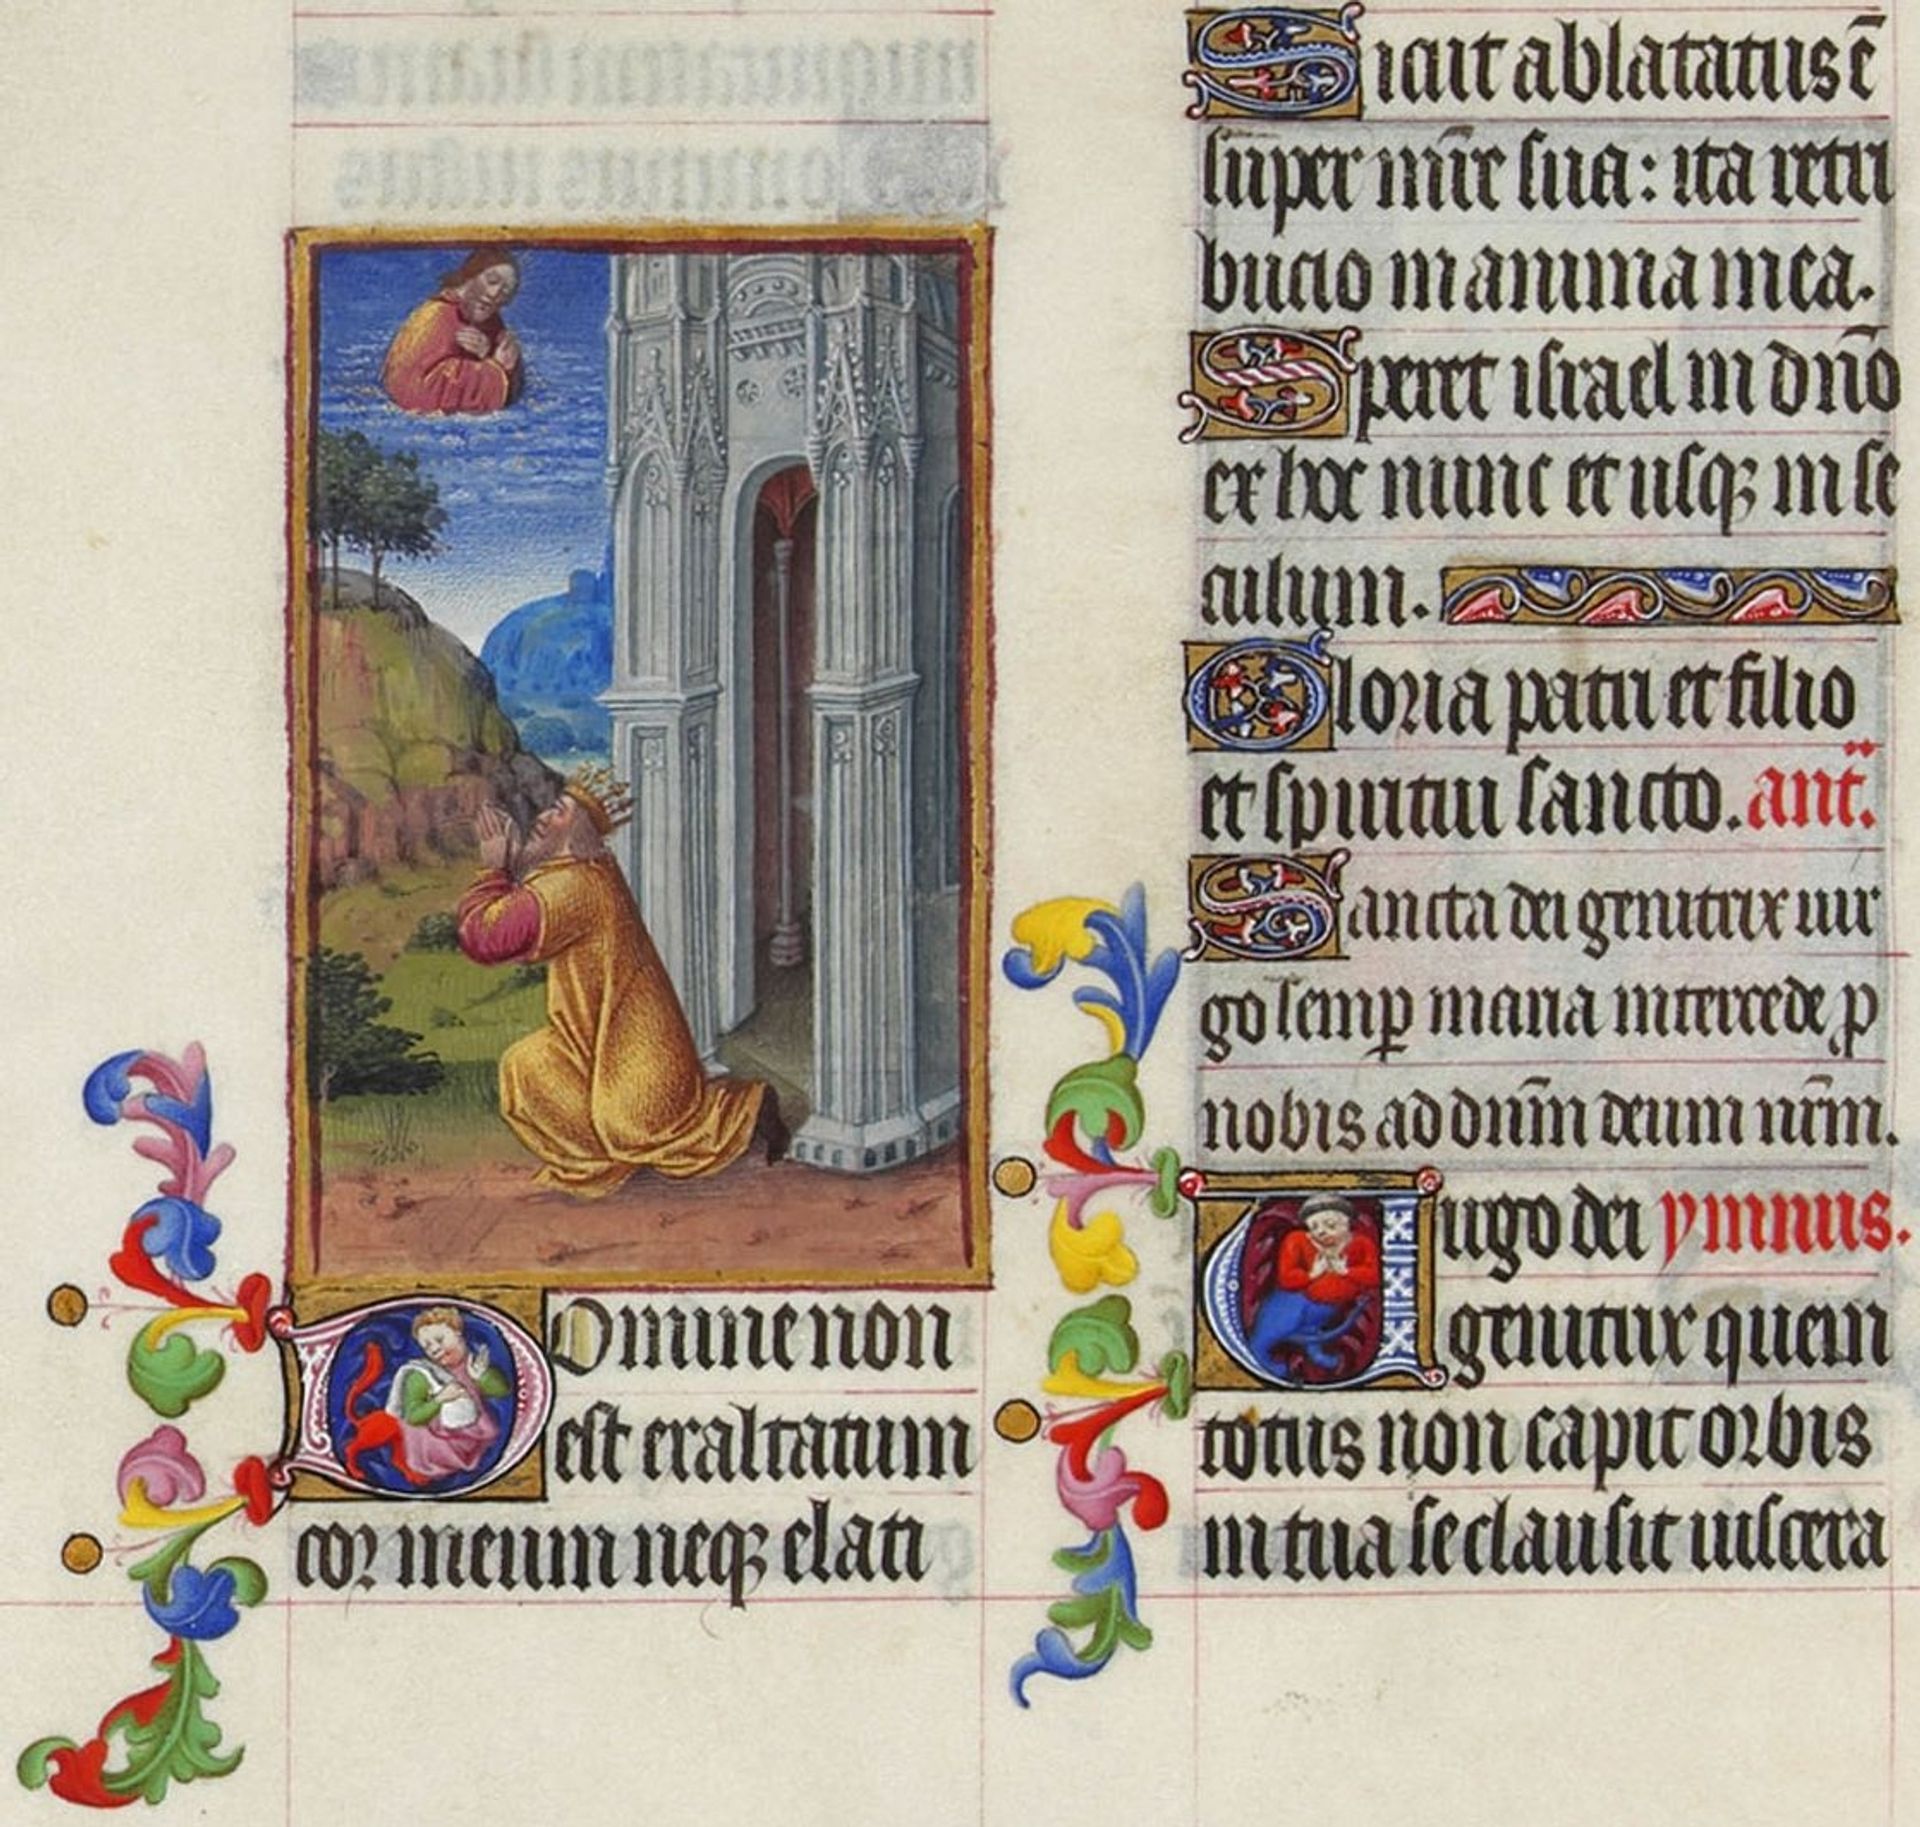 Domine non
est exaltatum
cor meum neqꝫ elati
Sicut ablatatus ē
super mr̄e sua: ita retri
bucio in anima mea.
Speret israel in dn̄o
ex hoc nunc et usqꝫ in se
culum.
Gloria patri et filio
et spiritui sancto. ant.
Sancta dei genitrix uir
go semꝑ maria intercede ꝓ
nobis ad dn̄m deum nr̄m.
Uirgo dei ymnus.
genitrix quem
totus non capit orbis
in tua se clausit uiscera